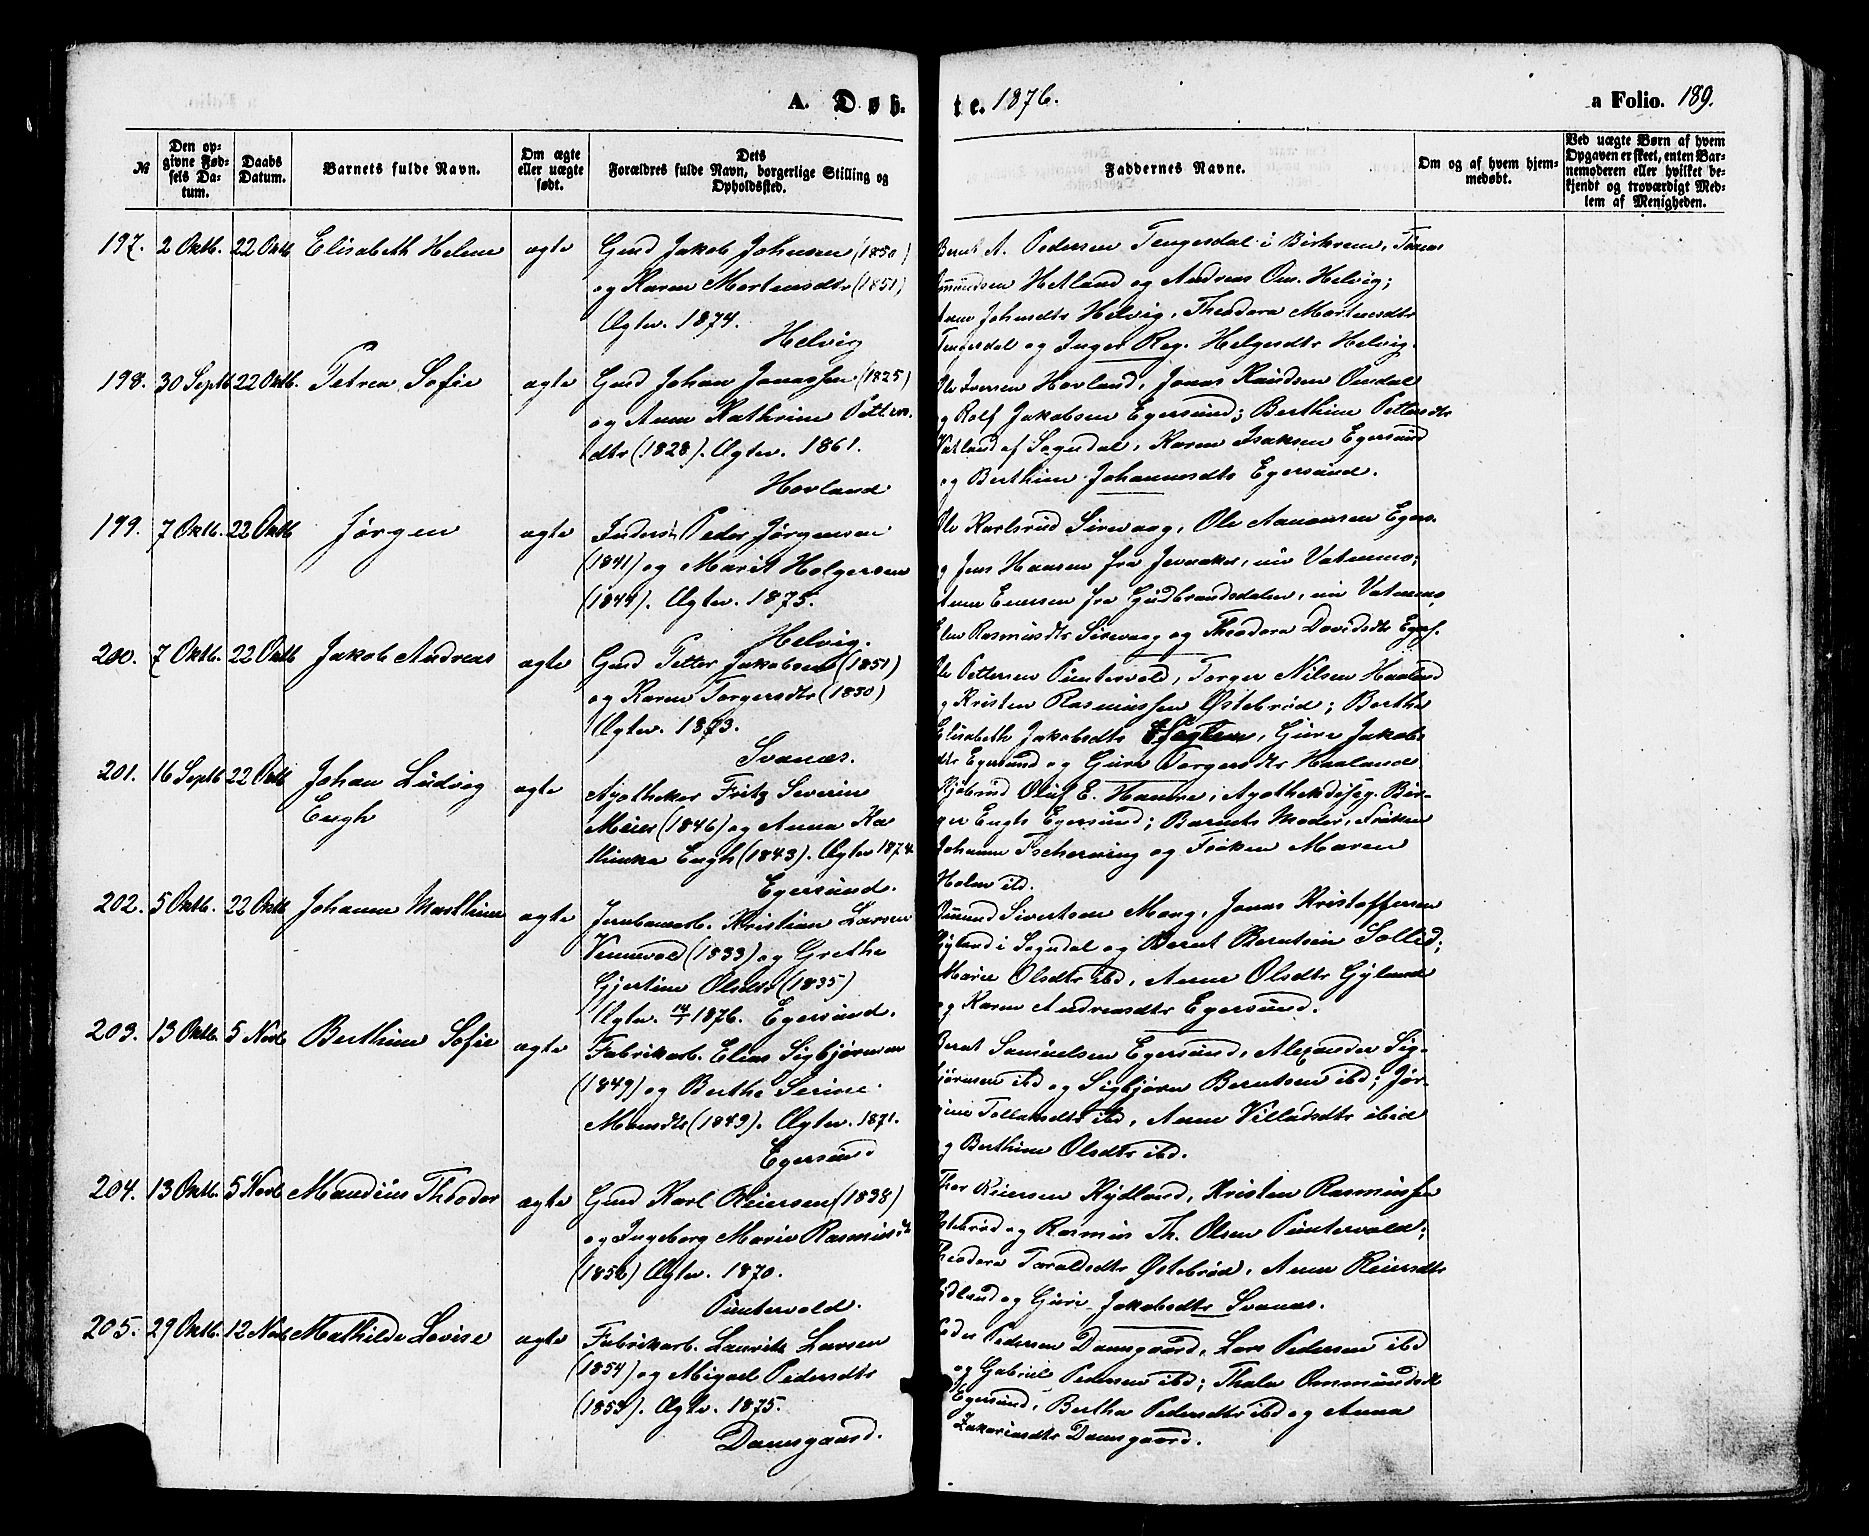 A. Døb-
te. 1876.
a Folio. 189.
№
Den op-
givne Fød-
sels Da-
tum.
Daabs
Datum.
Barnets fulde Navn.
Om ægte
eller uægte
født.
Dets
Forældres fulde Navn, borgerlige Stilling og
Opholdssted.
Faddernes Navne.
Om og af hvem hjem-
medøbt.
Ved uægte Børn af hvem
Opgaven er skeet, enten Bar-
nemoderen eller hvilket be-
kjendt og troværdigt Med-
lem af Menigheden.
197. 2 Oktb. 22 Oktb Elisabeth Helene ægte Gmd Jakob Johnsen (1850)
og Karen Mortensdtr (1851)
Ægtev. 1874.
Helvig
Bernt A. Pedersen Tengesdal i Birkrem,
Hetland og Andreas Om. Helvig;
Johnsdtr Helvig, Theodora Mortensdtr
Tengesdal og Inger Reg. Helgesdtr Helvig.
198. 30 Septb 22 Oktb. Petrea Sofie ægte Gmd Johan Jonassen (1825)
og Anne Kathrine Petters-
dtr (1828). Ægtev. 1861.
Hovland
Ole Iversen Hovland, Jonas Knudsen Omdal
og Rolf Jakobsen Egersund; Berthine Pettersdtr
Vatland af Sogndal, Karen Isaksen Egersund
og Berthine Johannesdtr Egersund.
199. 7 Oktb. 22 Oktb Jørgen ægte Inderst Peder Jørgensen
(1841) og Marit Holgersen
(1844). Ægtev. 1875.
Helvig.
Ole Karlsrud Sirevaag, Ole Aanonsen Egers.
og Jens Hansen fra Jevnaker, nu Vatnemo;
Anne Enersen fra Gudbrandsdalen, nu Vatnemo,
Elen Rasmusdtr Sirevaag og Theodora Davidsdtr Egers.
200. 7 Oktb. 22 Oktb Jakob Andreas ægte Gmd Petter Jakobsen (1851)
og Karen Torgersdtr (1850)
Ægtev. 1873.
Svanæs.
Ole Pettersen Puntervold, Torger Nilsen Haaland
og Kristen Rasmussen Østebrød; Berthe
Elisabeth Jakobsdtr, Guri Jakobs-
dtr Egersund og Guri Torgersdtr Haaland
201. 16 Septb 22 Oktb Johan Ludvig
Engh ægte Apotheker Fritz Severin
Meier (1846) og Anna Ka-
thinka Engh (1843). Ægtev 1874.
Egersund.
Oluf E. Hamre, Bir-
ger Engh Egersund; Barnets Moder, Frøken
Johanne Tscherning og Frøken Maren
Holm ibd.
202. 5 Oktb. 22 Oktb Johanne Mathine ægte Jernbanearb. Kristian Larsen
Vennevold (1833) og Grethe
Gjertine Olsdtr (1835)
Ægtev. 1876. Egersund.
Omund Sivertsen Mong, Jonas Kristoffersen
Gyland i Sogndal og Bernt Berntsen Sollid;
Marie Olsdtr ibd, Anne Olsdtr Gyland
og Karen Andreasdtr Egersund.
203. 13 Oktb. 5 Novb Berthine Sofie ægte Fabrikarb. Elias Sigbjørnsen
(1849) og Berthe Serine
Monsdtr (1849). Ægtev. 1871.
Egersund
Bernt Samuelsen Egersund, Alexander Sig-
bjørnsen ibd og Sigbjørn Berntsen ibd; Jør-
gine Tollaksdtr ibd, Anne Villadsdtr ibid
og Berthine Olsdtr ibd.
204. 13 Oktb. 5 Novb Mandius Theodor ægte Gmd Karl Reiersen (1838)
og Ingeborg Marie Rasmusdtr
(1852) Ægtev. 1870.
Puntervold.
Thor Reiersen Rydland, Kristen Rasmussen
Østebrød og Rasmus Th. Olsen Puntervold;
Theodora Taraldsdtr Østebrød, Anne Reiersdtr
Rydland og Guri Jakobsdtr Svanæs.
205. 29 Oktb. 12 Novb Mathilde Lovise ægte Fabrikarb. Laurits Larsen
(1854) og Migael Pedersdtr
(1853). Ægtev. 1875.
Damsgaard.
Peder Pedersen Damsgaard, Lars Pedersen ibd
og Gabriel Pedersen ibd; Thale Ommundsdtr
Egersund, Bertha Pedersdtr ibd og Anna
Zakariasdtr Damsgaard.